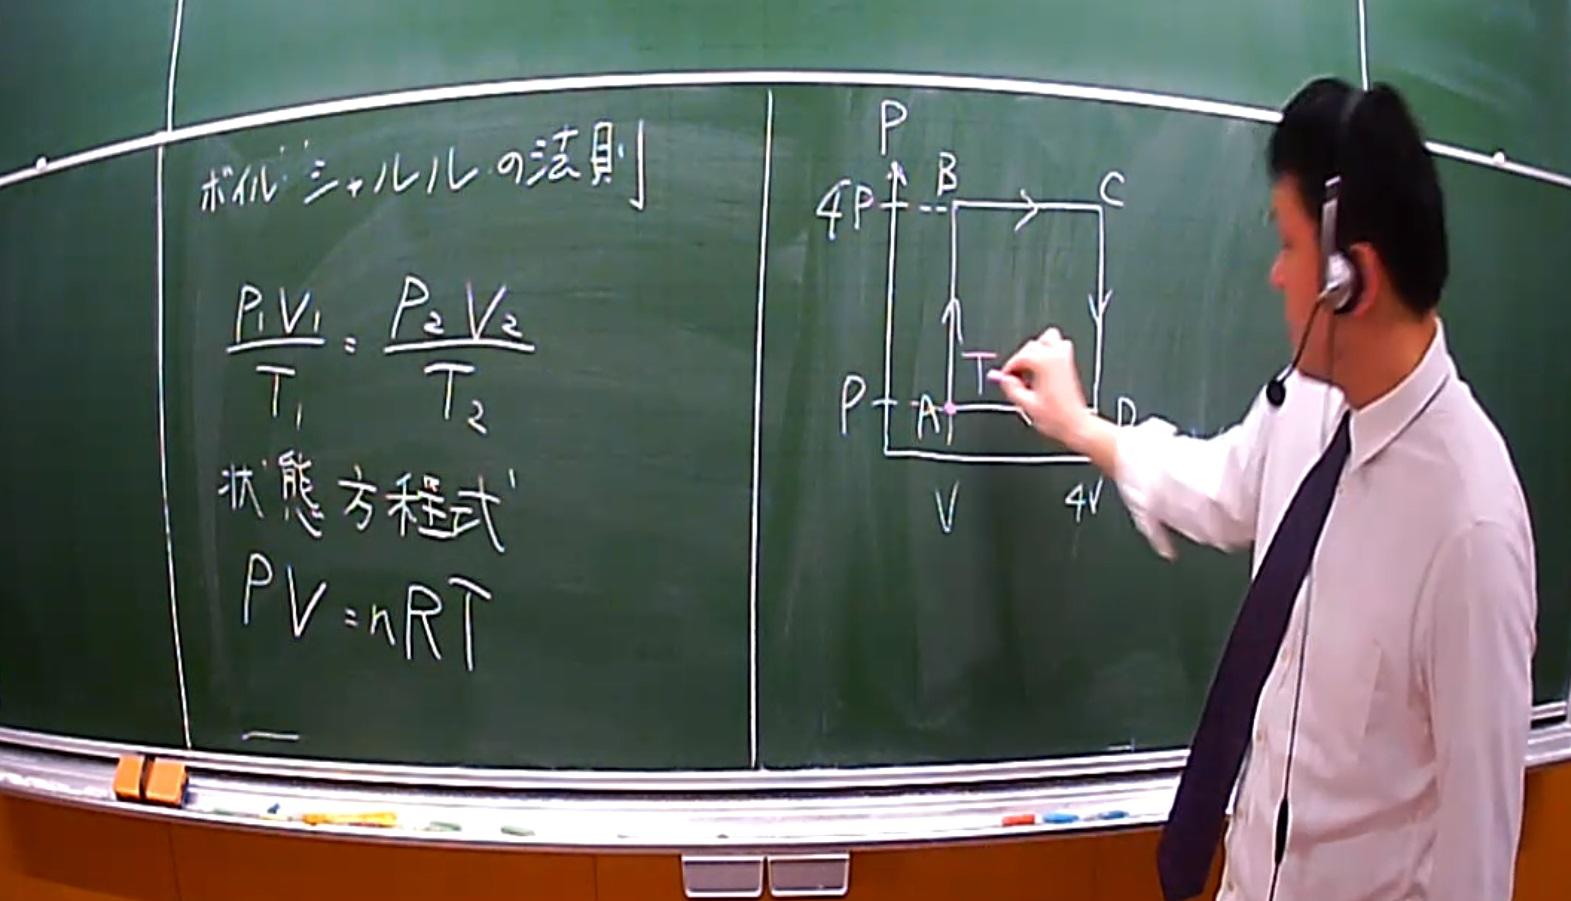 ボイル シャルルの法則
P₁V₁ / T₁ = P₂V₂ / T₂
状態方程式
PV=nRT
P
4P B C
T
P A D
V 4V